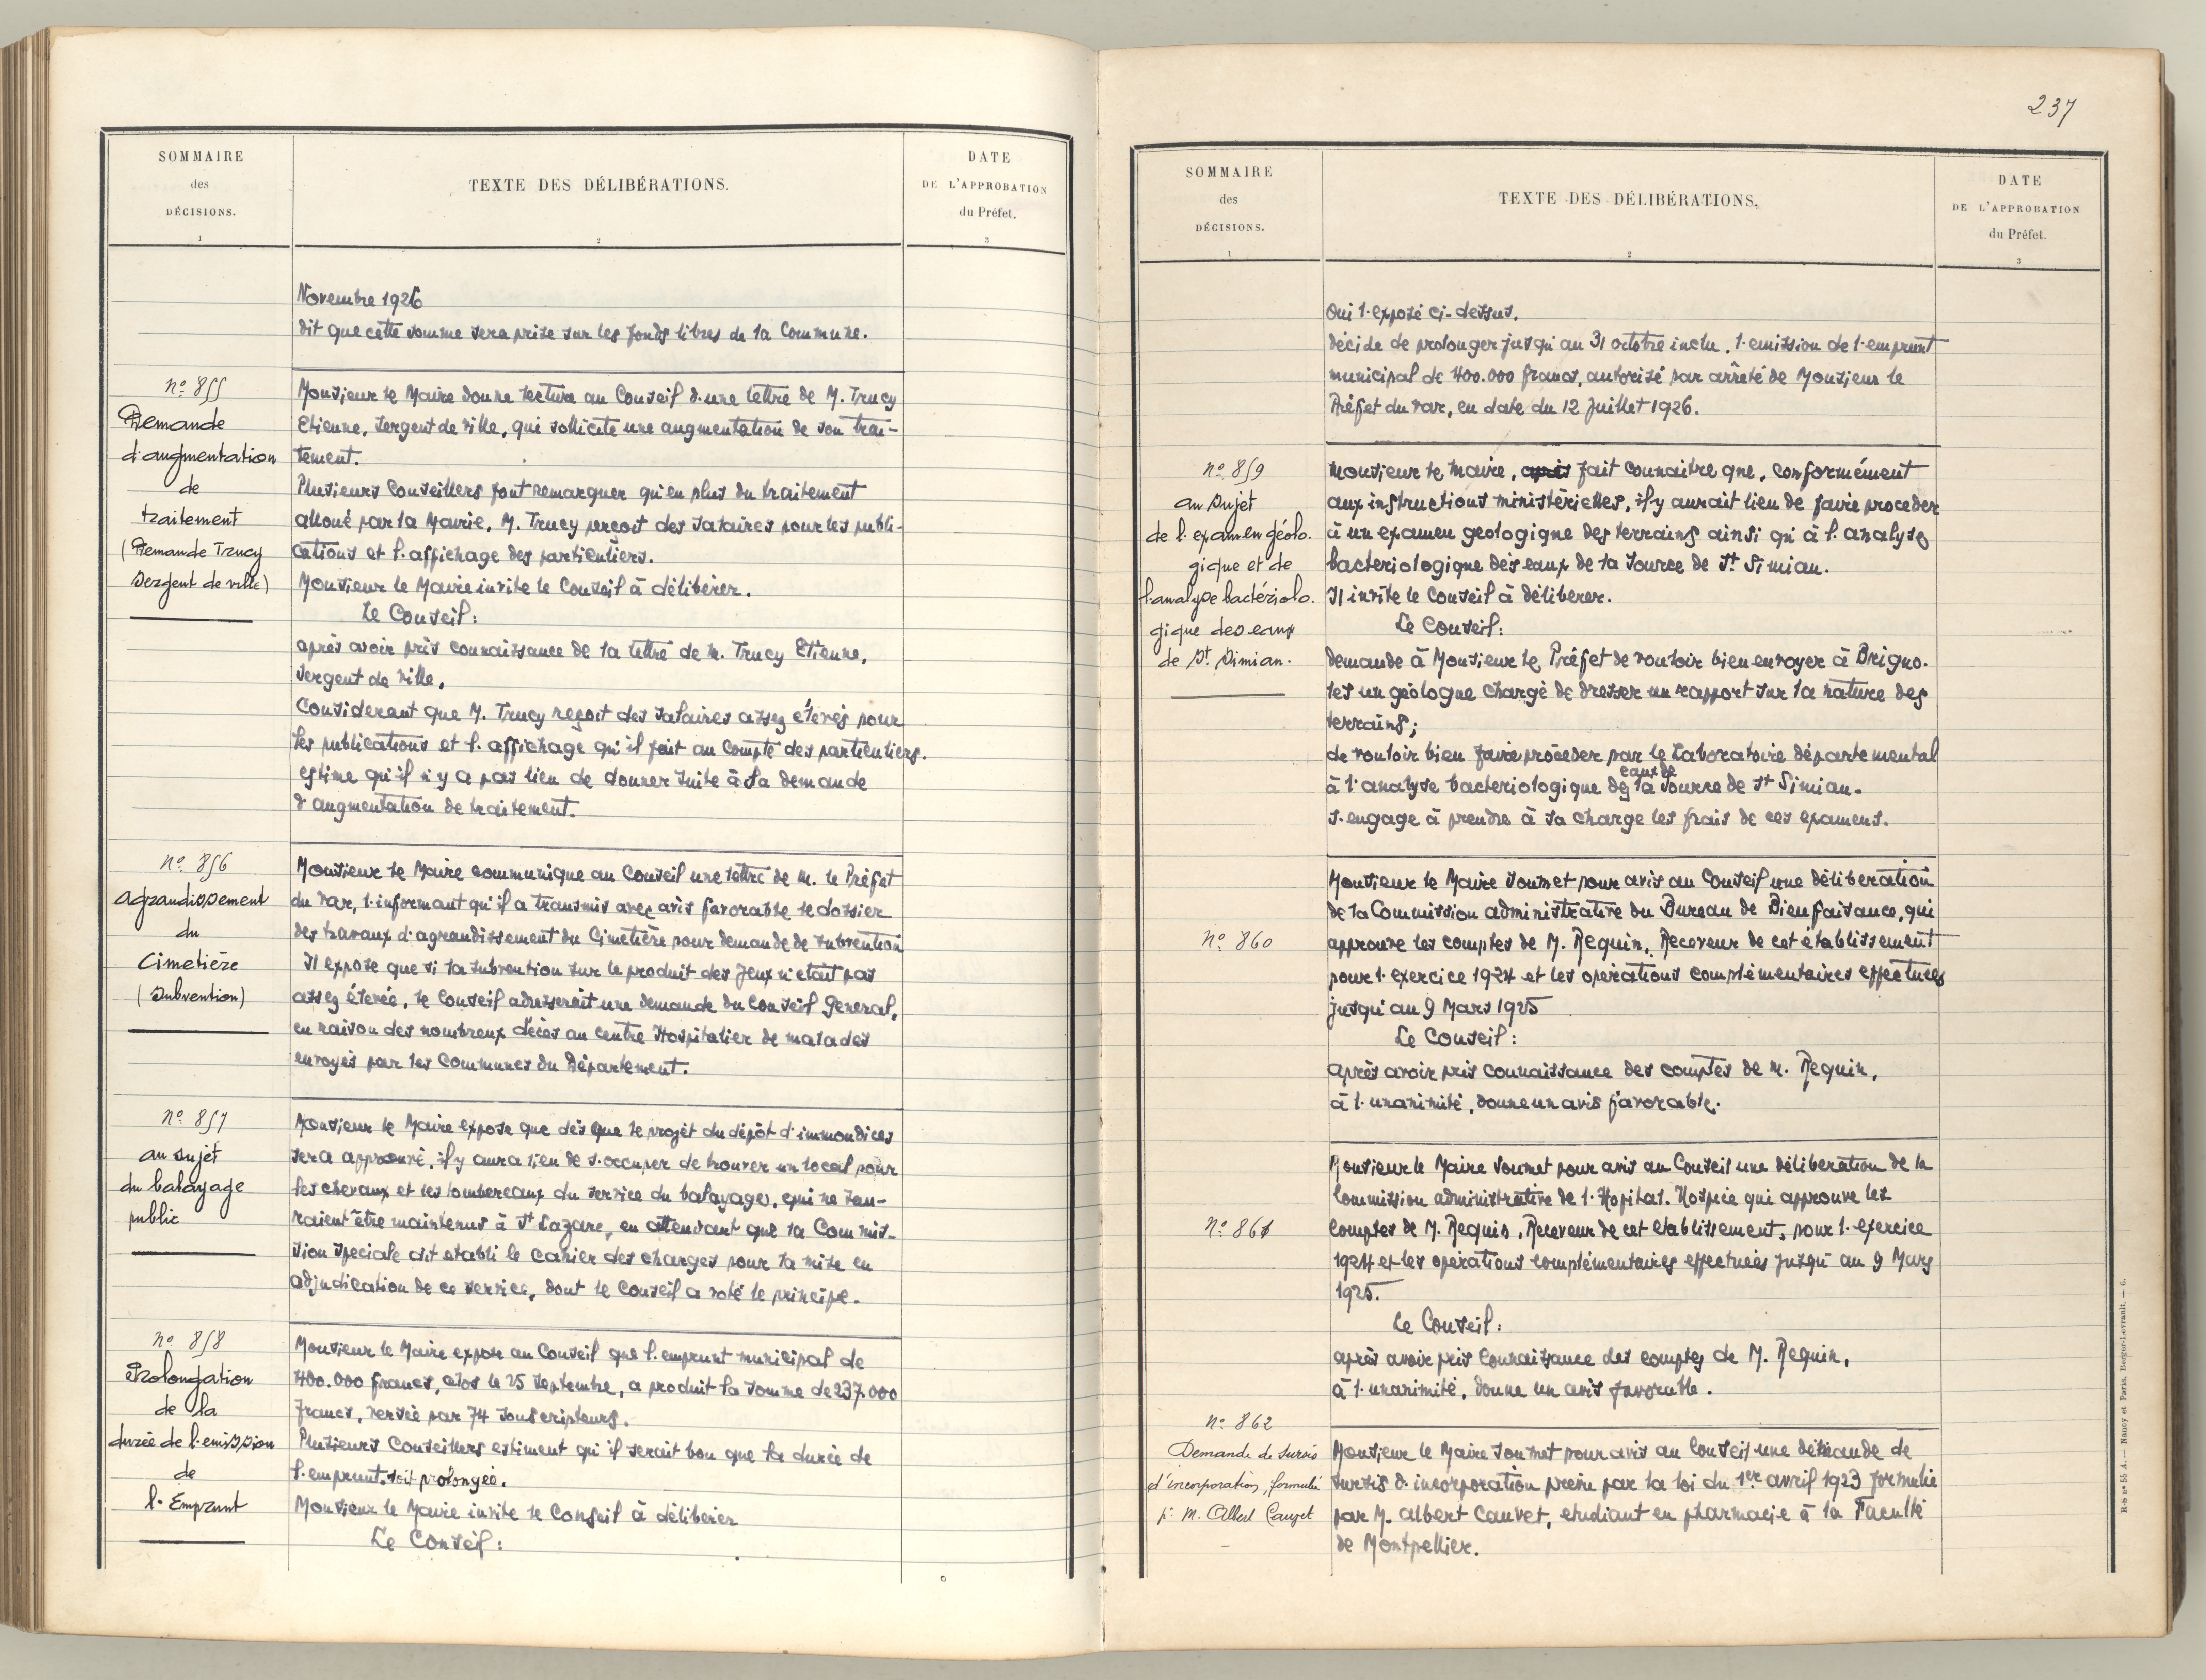 SOMMAIRE
des
DÉCISIONS.
1
TEXTE DES DÉLIBÉRATIONS.
2
DATE
DE L'APPROBATION
du Préfet.
3
Novembre 1926
dit que cette somme sera prise sur les fonds libres de la Commune.
nº 855
Demande
d'augmentation
de
traitement
(Demande Trucy
Sergent de ville)
Monsieur le Maire donne lecture au Conseil d'une lettre de M. Trucy
Etienne, Sergent de Ville, qui sollicite une augmentation de son trai-
tement.
Plusieurs Conseillers font remarquer qu'en plus du traitement
alloué par la Mairie, M. Trucy perçoit des salaires pour les publi-
cations et l'affichage des particuliers.
Monsieur le Maire invite le Conseil à délibérer.
Le Conseil:
après avoir pris connaissance de la lettre de M. Trucy Etienne,
Sergent de Ville,
Considerant que M. Trucy reçoit des salaires assez élevés pour
les publications et l'affichage qu'il fait au compte des particuliers.
estime qu'il n'y a pas lien de donner suite à sa demande
d'augmentation de traitement.
nº 856
agrandissement
du
Cimetière
(Subvention)
Monsieur le Maire communique au Conseil une lettre de M. le Préfet
du Var, l'informant qu'il a transmis avec avis favorable le dossier
des travaux d'agrandissement du Cimetière pour demande de subvention
Il expose que si la subvention sur le produit des jeux n'etait pas
assez élevée, le Conseil adresserait une demande du Conseil General,
en raison des nombreux décès au centre Hospitalier de malades
envoyés par les Communes du Département.
nº 857
au sujet
du balayage
public
Monsieur le Maire expose que dès que le projet du dépôt d'immondices
sera approuvé, il y aura lieu de s'occuper de trouver un local pour
les chevaux et les tombereaux du service du balayage, qui ne sau-
raient être maintenus à St Lazare, en attendant que la Commis-
sion Speciale ait etabli le cahier des charges pour la mise en
adjudication de ce service, dont le Conseil a voté le principe.
nº 858
Prolongation
de la
durée de l'emission
de
l'Emprunt
Monsieur le Maire expose au Conseil que l'emprunt municipal de
400.000 francs, clos le 25 Septembre, a produit la somme de 237.000
francs, versée par 74 souscripteurs.
Plusieurs Conseillers estiment qu'il serait bon que la durée de
l'emprunt soit prolongée.
Monsieur le Maire invite le Conseil à délibérer
Le Conseil:
237
SOMMAIRE
des
DÉCISIONS.
1
TEXTE DES DÉLIBÉRATIONS.
2
DATE
DE L'APPROBATION
du Préfet.
3
Oui l'exposé ci-dessus.
décide de prolonger jusqu'au 31 octobre inclu, l'emission de l'emprunt
municipal de 400.000 francs, autorisé par arrêté de Monsieur le
Préfet du Var, en date du 12 Juillet 1926.
nº 859
au sujet
de l'examen géolo.
gique et de
l'analyse bactériolo.
gique des eaux
de St. Simian.
Monsieur le Maire, après fait connaitre que, conformément
aux instructions ministérielles, il y aurait lieu de faire proceder
à un examen geologique des terrains ainsi qu'à l'analyse
bacteriologique des eaux de la Source de St. Simian.
Il invite le Conseil à délibérer.
Le Conseil:
demande à Monsieur le Préfet de vouloir bien envoyer à Brigno.
les un géologue chargé de dresser un rapport sur la nature des
terrains;
de vouloir bien faire procéder par le Laboratoire départemental
eaux de
à l'analyse bacteriologique des la Source de St Simian.
s'engage à prendre à sa charge les frais de ces examens.
nº 860
Monsieur le Maire soumet pour avis au Conseil une déliberation
de la Commission administrative du Bureau de Bienfaisance, qui
approuve les comptes de M. Requin, Receveur de cet établissement
pour l'exercice 1924 et les opérations complémentaires effectuées
jusqu'au 9 Mars 1925
Le Conseil:
après avoir pris connaissance des comptes de M. Requin,
à l'unanimité, donne un avis favorable.
nº 861
Monsieur le Maire soumet pour avis au Conseil une déliberation de la
Commission administrative de l'Hopital. Hospice qui approuve les
comptes de M. Requin, Receveur de cet etablissement, pour l'exercice
1924 et les opérations complémentaires effectuées jusqu'au 9 Mars
1925.
Le Conseil:
après avoir pris connaissance des comptes de M. Requin,
à l'unanimité, donne un avis favorable.
nº 862
Demande de sursis
d'incorporation, formulée
p: M. Albert Cauvet
Monsieur le Maire soumet pour avis au Conseil une demande de
sursis d'incorporation prévu par la loi du 1er avril 1923 formulée
par M. Albert Cauvet, etudiant en pharmacie à la Faculté
de Montpellier.
R-S nº 55 A. — Nancy et Paris, Berger-Levrault. — 6.